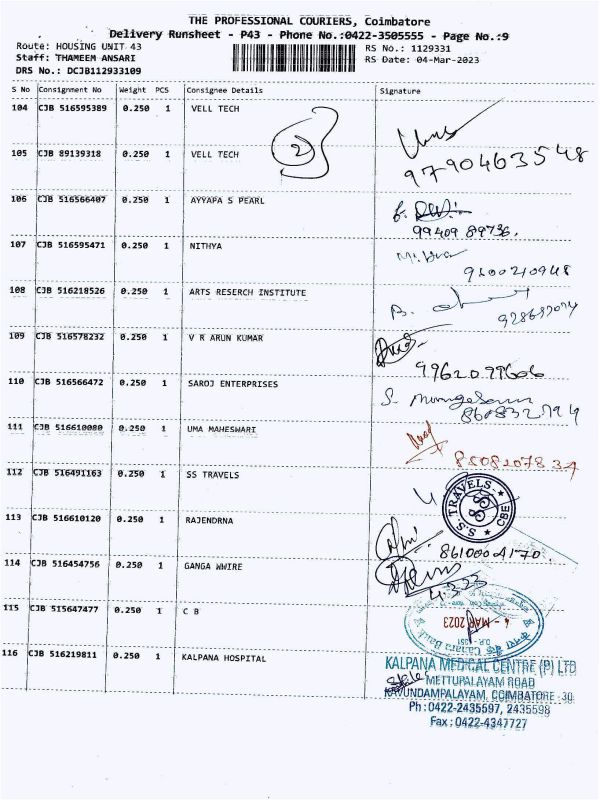 THE PROFESSIONAL COURIERS, Coimbatore
Delivery Runsheet - P43 - Phone No.:0422-3505555 - Page No.:9
Route: HOUSING UNIT 43
RS No.: 1129331
Staff: THAMEEM ANSARI
RS Date: 04-Mar-2023
DRS No.: DCJB112933109
S No Consignment No Weight PCS Consignee Details Signature
104 CJB 516595389 0.250 1 VELL TECH
2
9790463548
105 CJB 89139318 0.250 1 VELL TECH
106 CJB 516566407 0.250 1 AYYAPA S PEARL
99409 89736.
107 CJB 516595471 0.250 1 NITHYA
108 CJB 516218526 0.250 1 ARTS RESERCH INSTITUTE
109 CJB 516578232 0.250 1 V R ARUN KUMAR
110 CJB 516566472 0.250 1 SAROJ ENTERPRISES
111 CJB 516610080 0.250 1 UMA MAHESWARI
112 CJB 516491163 0.250 1 SS TRAVELS
S.S. TRAVELS CBE
113 CJB 516610120 0.250 1 RAJENDRNA
8610004170.
114 CJB 516454756 0.250 1 GANGA WWIRE
4.3.23
115 CJB 515647477 0.250 1 C B
4 - MAR 2023
Canara Bank
116 CJB 516219811 0.250 1 KALPANA HOSPITAL
KALPANA MEDICAL CENTRE (P) LTD
METTUPALAYAM ROAD
KAVUNDAMPALAYAM, COIMBATORE - 30
Ph : 0422-2435597, 2435598
Fax : 0422-4347727